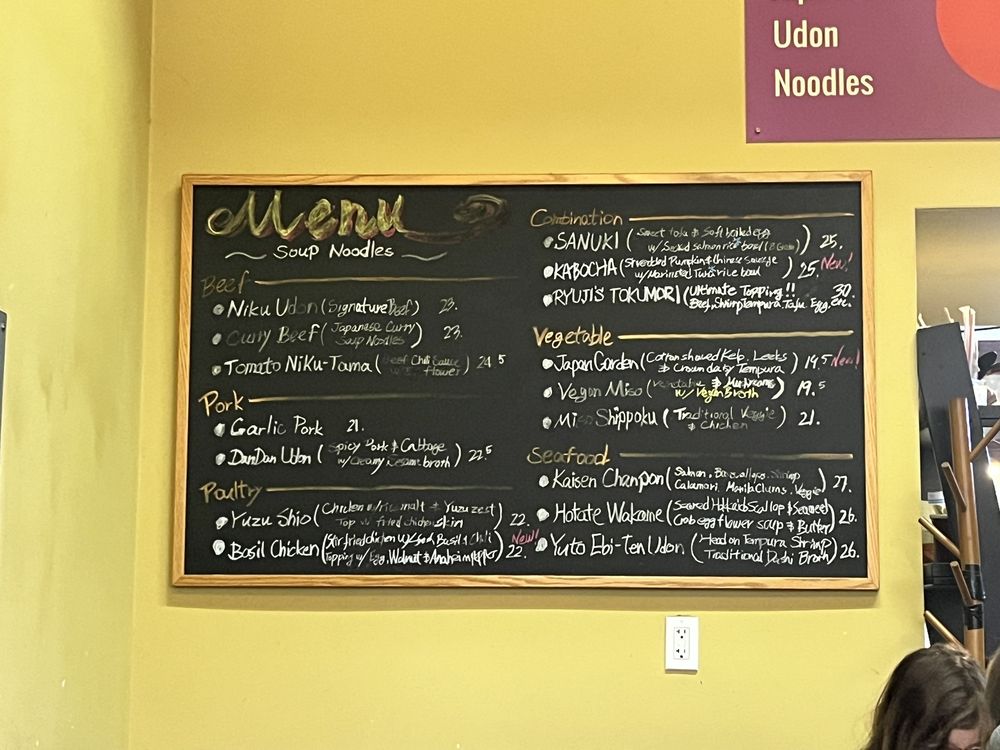 Udon
Noodles
Menu
Soup Noodles
Beef
Niku Udon (Signature Beef) 23.
Curry Beef (Japanese Curry
Soup Noodles) 23.
Tomato Niku-Tama (Beef Chili Sauce
flower) 24.5
Pork
Garlic Pork 21.
DanDan Udon (Spicy Pork & Cabbage
w/ Creamy Sesame broth) 22.5
Poultry
Yuzu Shio (Chicken w/ rice malt & Yuzu zest
Top w/ fried chicken skin) 22.
Basil Chicken (Stir fried chicken w/ Basil & Chili
Topping w/ Egg, Walnut & Anaheim pepper) 22. New!
Combination
SANUKI (Sweet Tofu & Soft boiled egg
w/ salmon rice bowl) 25.
KABOCHA (Shredded Pumpkin & Chinese Sausage
w/ Marinated Tuna rice bowl) 25. New!
RYUJI'S TOKUMORI (Ultimate Topping!!
Beef, Shrimp Tempura, Tofu, Egg, etc. 30.
Vegetable
Japan Garden (Cotton shaved Kelp, Leeks
& Crown daisy Tempura) 19.5 New!
Vegan Miso (Vegetable & Mushrooms
w/ Vegan broth) 19.5
Miso Shippoku (Traditional Veggie
& Chicken) 21.
Seafood
Kaisen Chanpon (Salmon, Bay scallops, Shrimp
Calamari, Manila Clams, Veggie) 27.
Hotate Wakame (Seared Hokkaido Scallop & Seaweed
Crab egg flower soup & Butter) 26.
Yuto Ebi-Ten Udon (Head on Tempura Shrimp
Traditional Dashi Broth) 26.